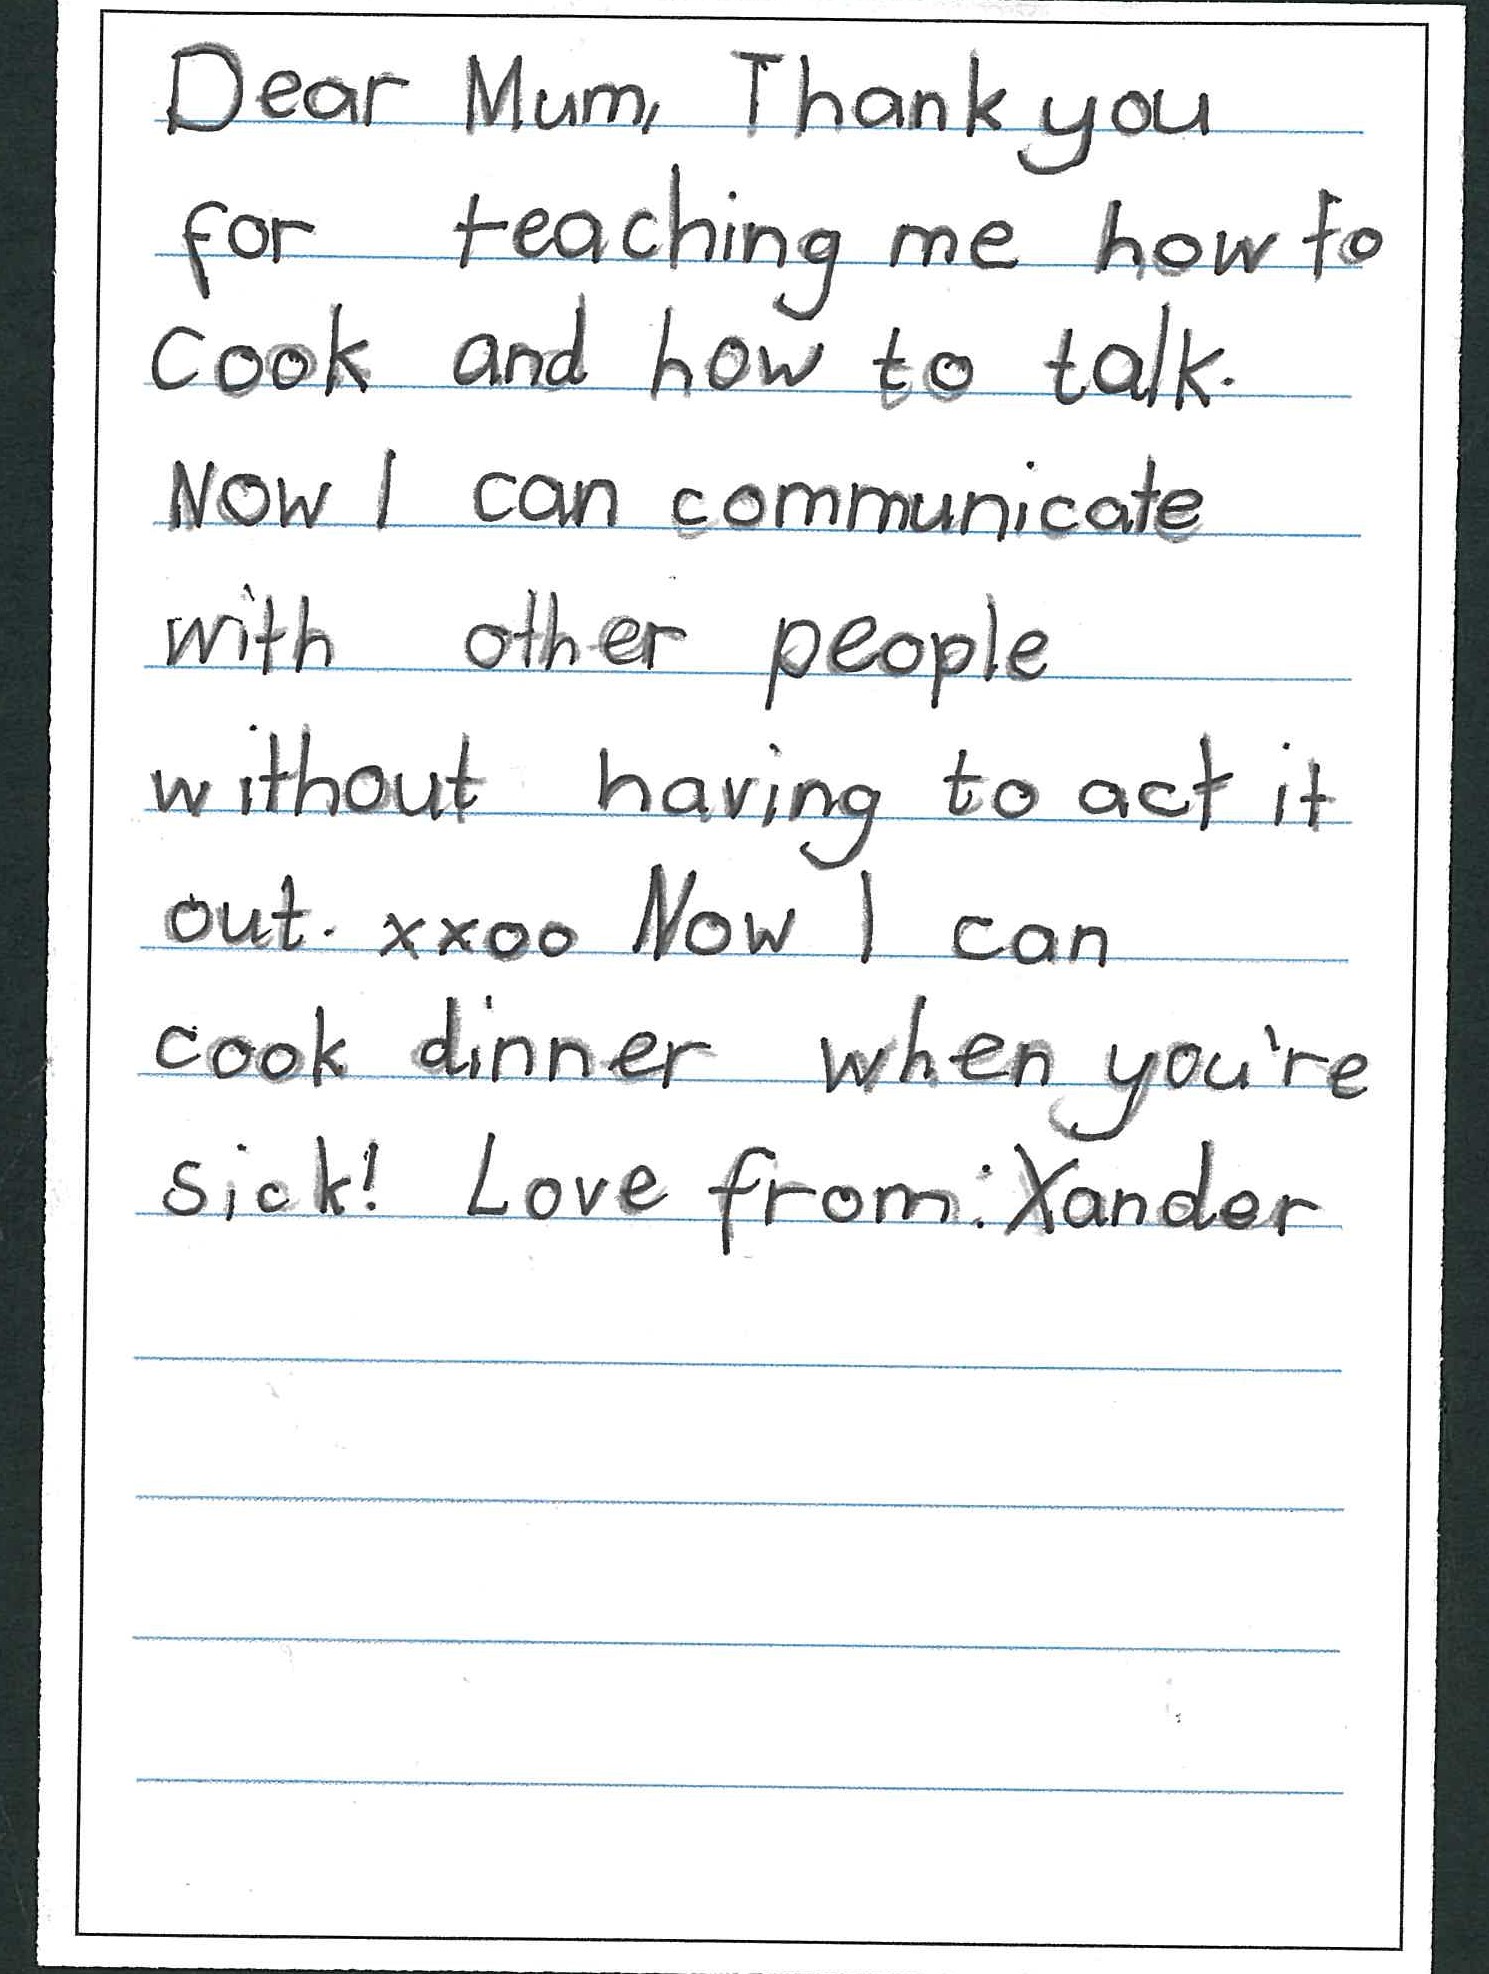 Dear Mum, Thank you
for teaching me how to
Cook and how to talk.
Now I can communicate
with other people
without having to act it
out. xxoo Now I can
cook dinner when you're
sick! Love from: Xander